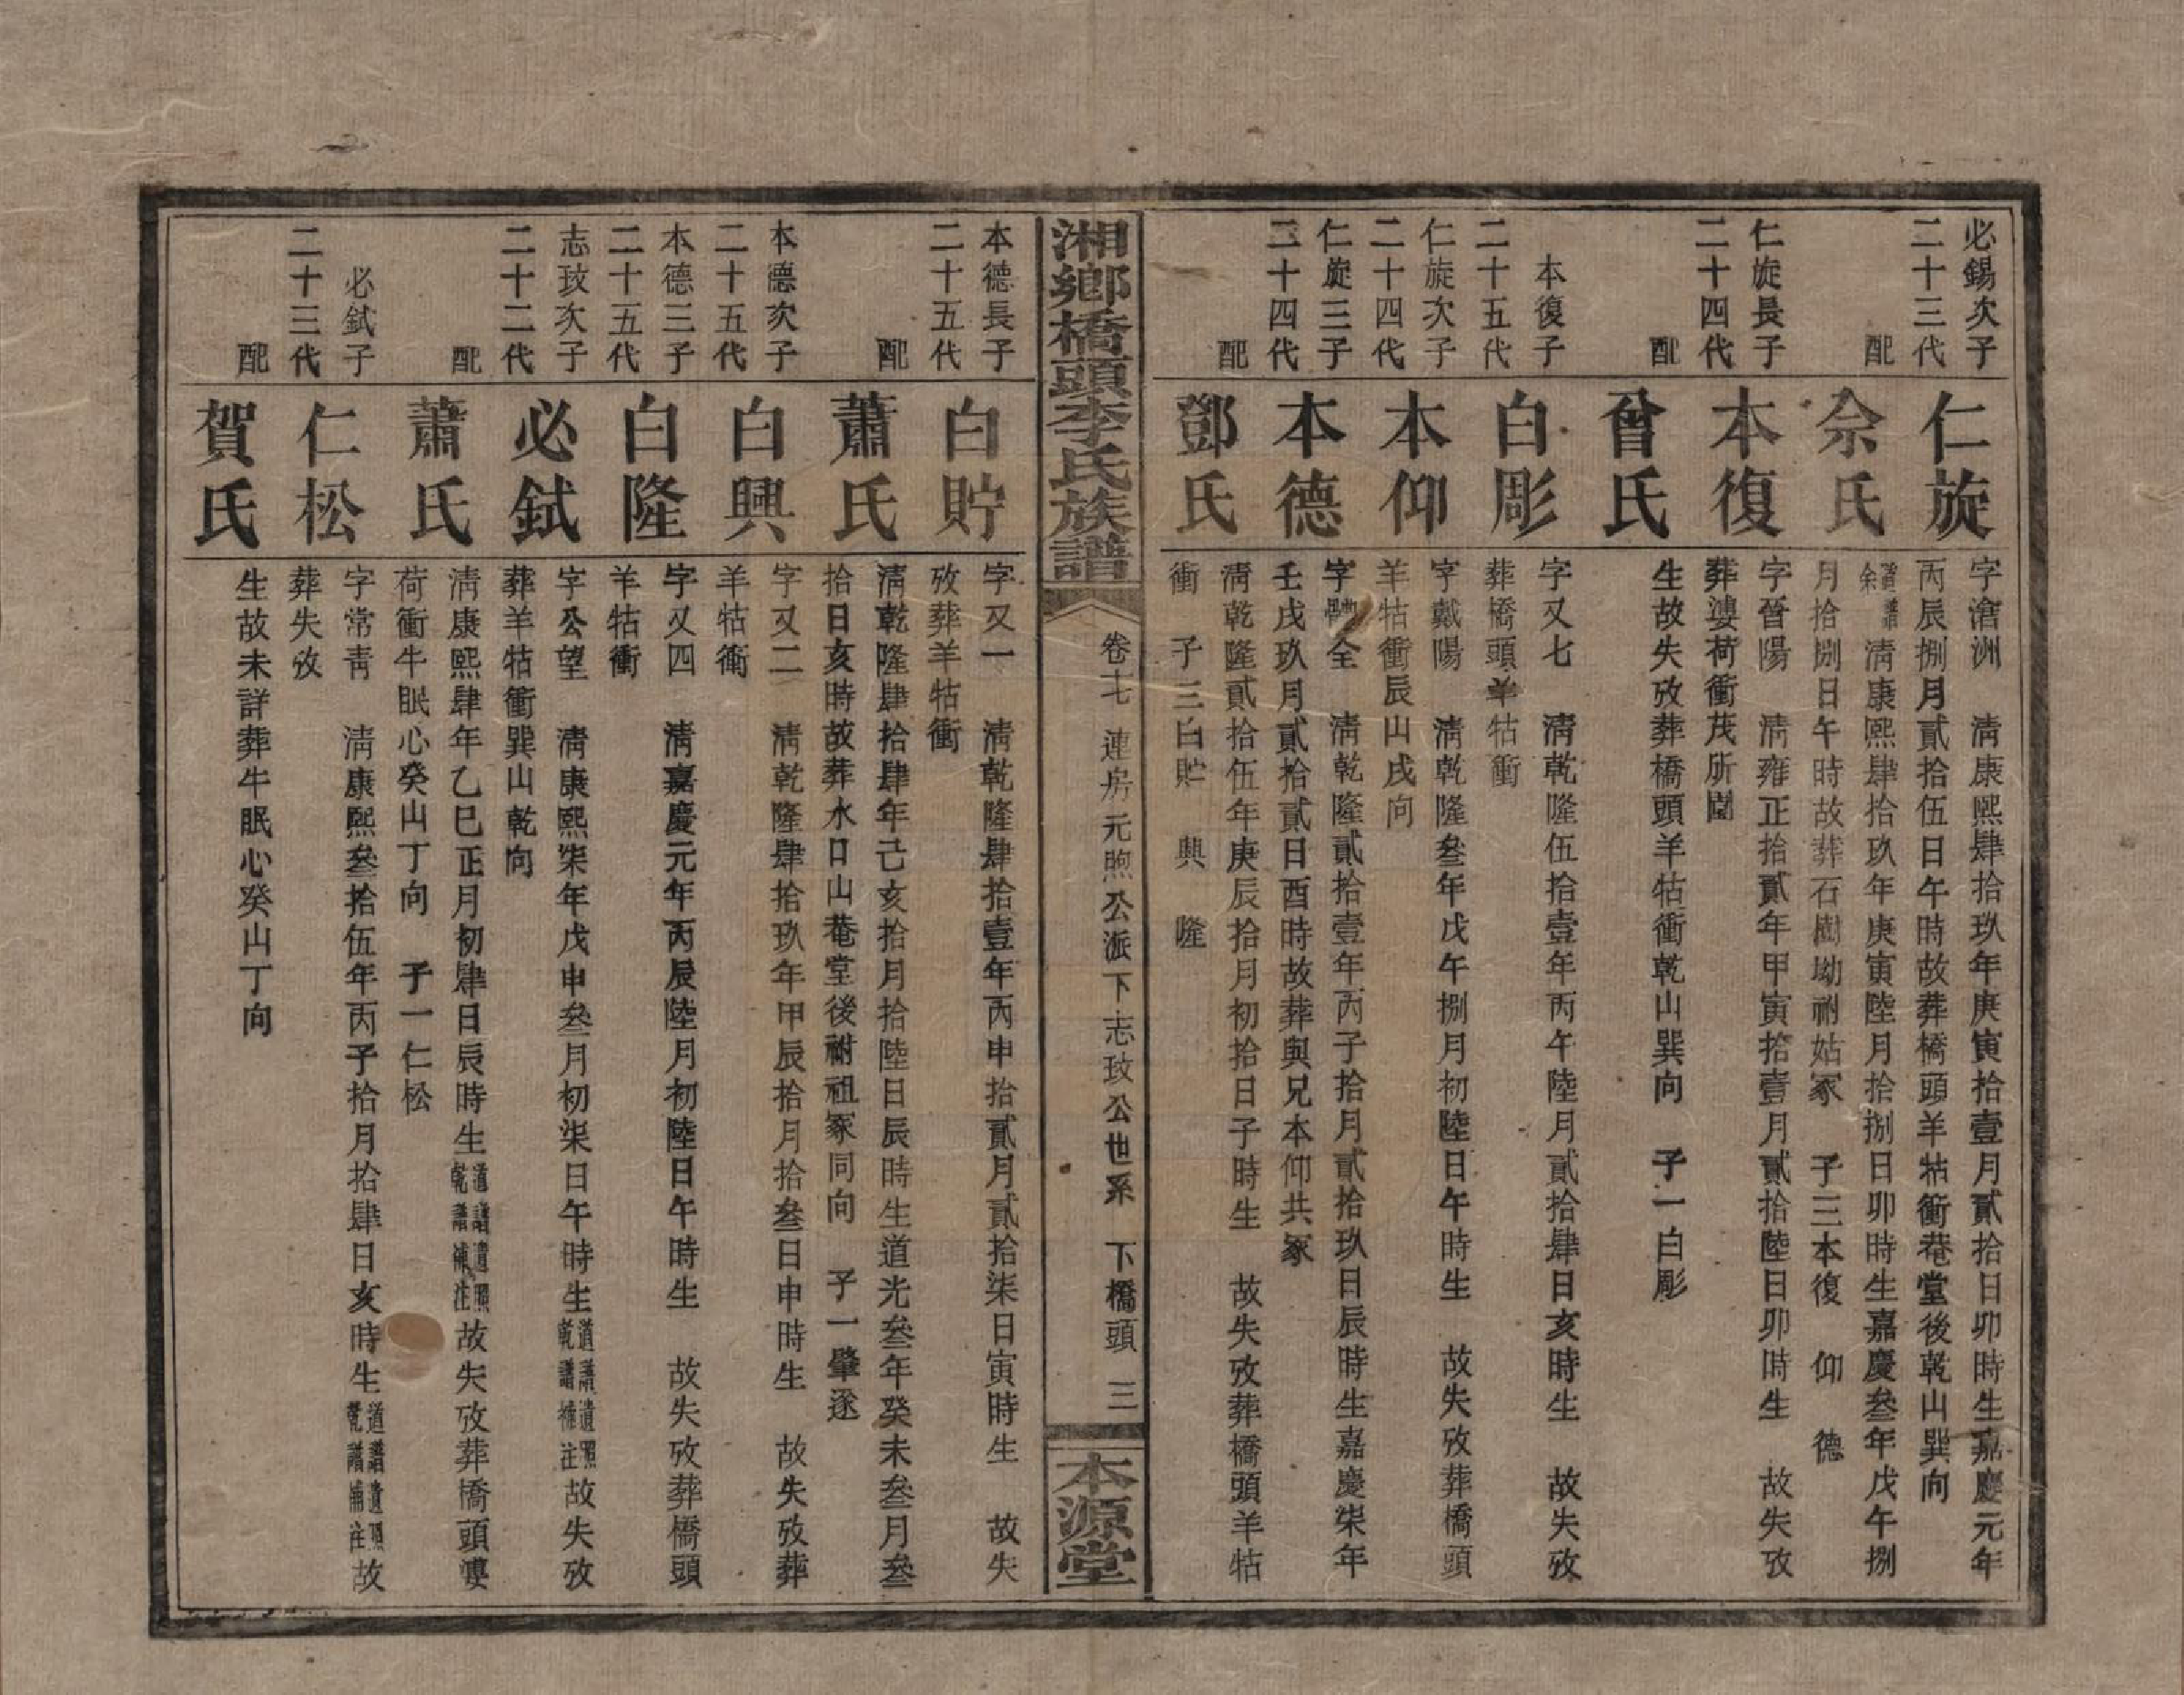 必錫次子
二十三代
仁旋
字濸洲 清康熙肆拾玖年庚寅拾壹月貳拾日卯時生嘉慶元年
丙辰捌月貳拾伍日午時故葬橋頭羊牯衝菴堂後乾山巽向
配
佘氏
道譜余 清康熙肆拾玖年庚寅陸月拾捌日卯時生嘉慶叁年戊午捌
月拾捌日午時故葬石樹坳祔姑冢 子三本復 仰 德
仁旋長子
二十四代
本復
字晉陽 清雍正拾貳年甲寅拾壹月貳拾陸日卯時生 故失攷
葬婁荷衝茂所園
配
曾氏
生故失攷葬橋頭羊牯衝乾山巽向 子一白彫
本復子
二十五代
白彫
字又七 清乾隆伍拾壹年丙午陸月貳拾肆日亥時生 故失攷
葬橋頭羊牯衝
仁旋次子
二十四代
本仰
字戴陽 清乾隆叁年戊午捌月初陸日午時生 故失攷葬橋頭
羊牯衝辰山戌向
仁旋三子
二十四代
本德
字 全 清乾隆貳拾壹年丙子拾月貳拾玖日辰時生嘉慶柒年
壬戌玖月貳拾貳日酉時故葬與兄本仰共冢
配
鄧氏
清乾隆貳拾伍年庚辰拾月初拾日子時生 故失攷葬橋頭羊牯
衝 子三白貯 興 隆
湘鄉橋頭李氏族譜
卷七 連房元煦公派下志玫公世系 下橋頭 三
本源堂
本德長子
二十五代
白貯
字又一 清乾隆肆拾壹年丙申拾貳月貳拾柒日寅時生 故失
攷葬羊牯衝
配
蕭氏
清乾隆肆拾肆年己亥拾月拾陸日辰時生道光叁年癸未叁月叁
拾日亥時故葬水口山菴堂後祔祖冢同向 子一肇遂
本德次子
二十五代
白興
字又二 清乾隆肆拾玖年甲辰拾月拾叁日申時生 故失攷葬
羊牯衝
本德三子
二十五代
白隆
字又四 清嘉慶元年丙辰陸月初陸日午時生 故失攷葬橋頭
羊牯衝
志玫次子
二十二代
必鉽
字公望 清康熙柒年戊申叁月初柒日午時生道譜遺照乾譜補注故失攷
葬羊牯衝巽山乾向
配
蕭氏
清康熙肆年乙巳正月初肆日辰時生道譜遺照乾譜補注故失攷葬橋頭婁
荷衝牛眠心癸山丁向 子一仁松
必鉽子
二十三代
仁松
字常青 清康熙叁拾伍年丙子拾月拾肆日亥時生道譜遺照乾譜補注故
葬失攷
配
賀氏
生故未詳葬牛眠心癸山丁向